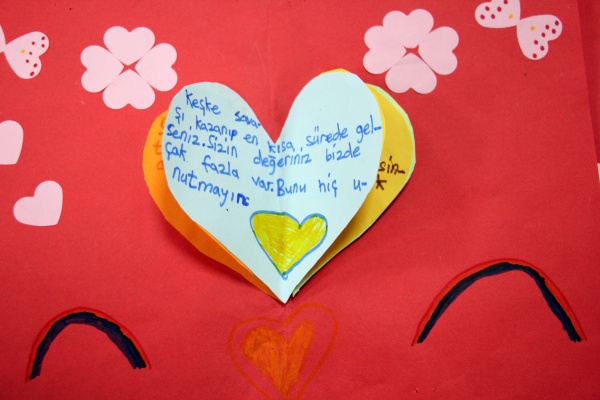 Keşke savaş
şı kazanıp en kısa sürede gel-
seniz. Sizin değeriniz bizde
çak fazla var. Bunu hiç u-
nutmayın
sin-